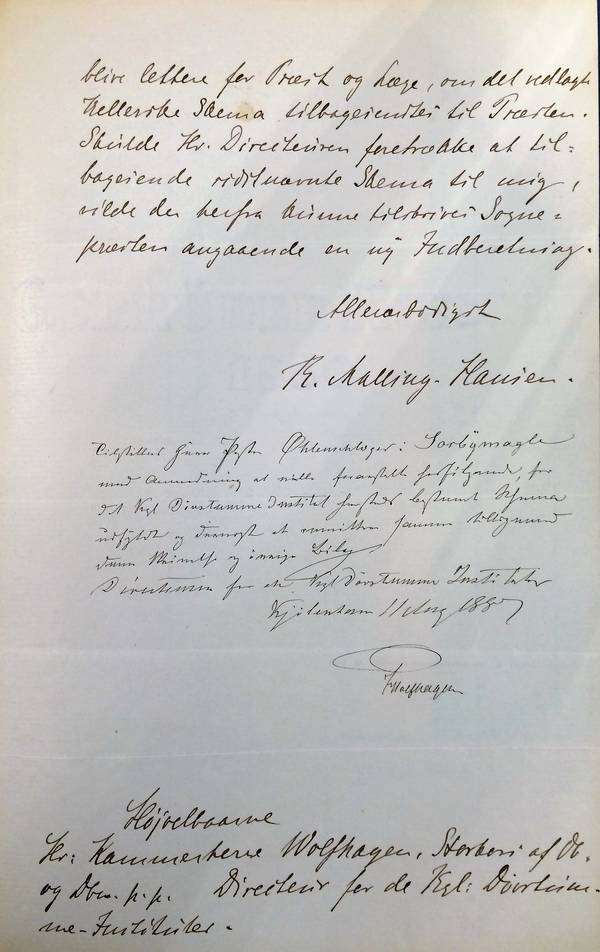 blive lettere for Præst og Læge, om det vedlagte
Kellerske Skema tilbagesendtes til Præsten.
Skulde Hr. Directeuren foretrække at til=
bagesende sidstnævnte Skema til mig,
vilde der herfra kunne tilskrives Sogne=
præsten angaaende en ny Indberetning.
Allerærbødigst
R. Malling-Hansen.
Tilstilles Herr Pastor Øhlenschlæger i Sørbymagle
med Anmodning at ville foranstalte hosfølgende, for
det Kgl Døvstumme Institut bestemt Schema
udfyldt og dernæst at remittere samme tilligemed
denne Skrivelse og øvrige Bilag
Directionen for de Kgl Døvstumme Instituter
Kjøbenhavn 11 Aug 1887
Wolfhagen
Højvelbaarne
Hr. Kammerherre Wolfhagen, Storkors af Db.
og Dbm. p.p. Directeur for de Kgl: Døvstum-
me-Instituter.